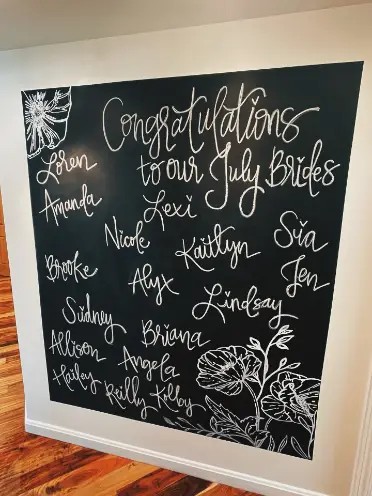 Congratulations
to our July Brides
Loren
Lexi
Amanda
Nicole
Kaitlyn
Sia
Brooke
Alyx
Jen
Lindsay
Sidney
Briana
Allison
Angela
Hailey
Reilly
Kolby